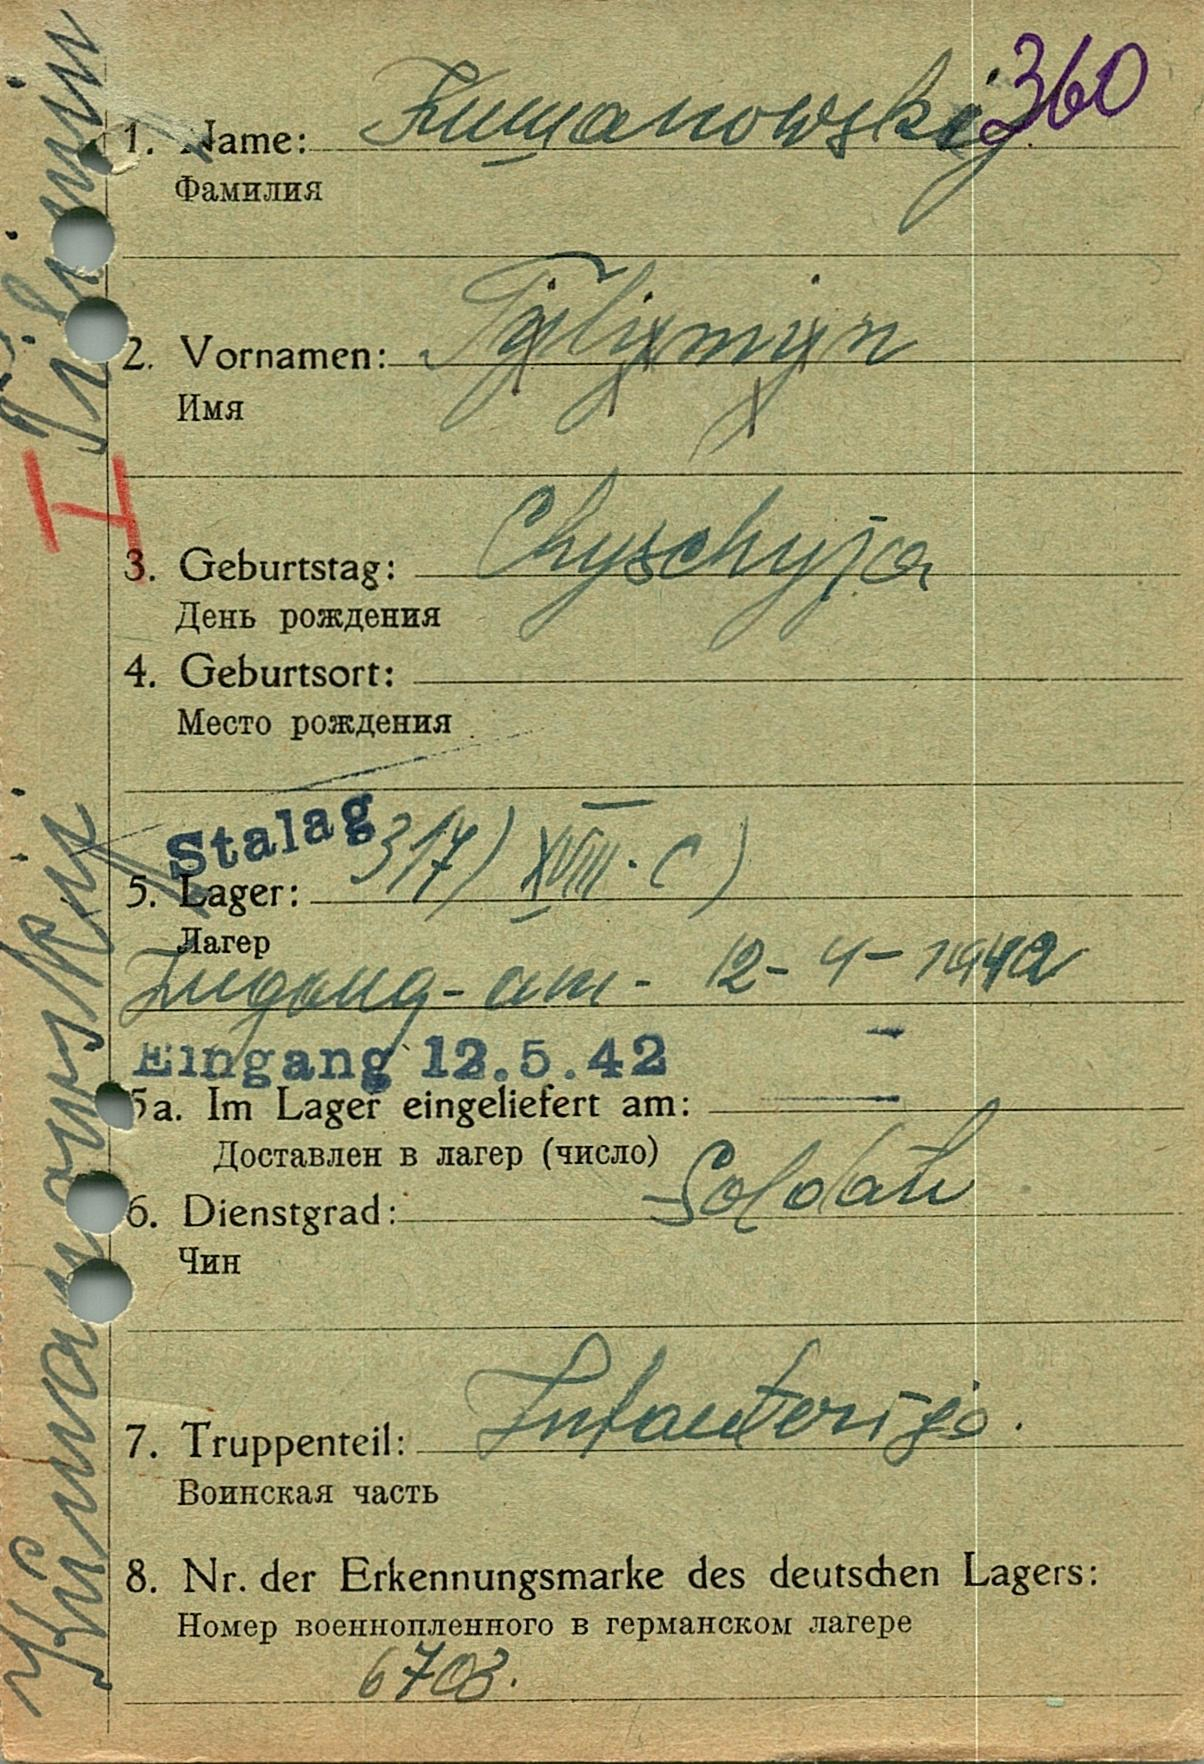 360
1. Name: Kumanowskij
Фамилия
2. Vornamen:
Имя
3. Geburtstag: Chyschyja
День рождения
4. Geburtsort:
Место рождения
Stalag 317) XVIII·C)
5. Lager:
Лагер
Zugang-am- 12-4-1942
Eingang 12.5.42
5a. Im Lager eingeliefert am:
Доставлен в лагер (число)
6. Dienstgrad: Soldat
Чин
7. Truppenteil: Infanterije.
Воинская часть
8. Nr. der Erkennungsmarke des deutschen Lagers:
Номер военнопленного в германском лагере
6703.